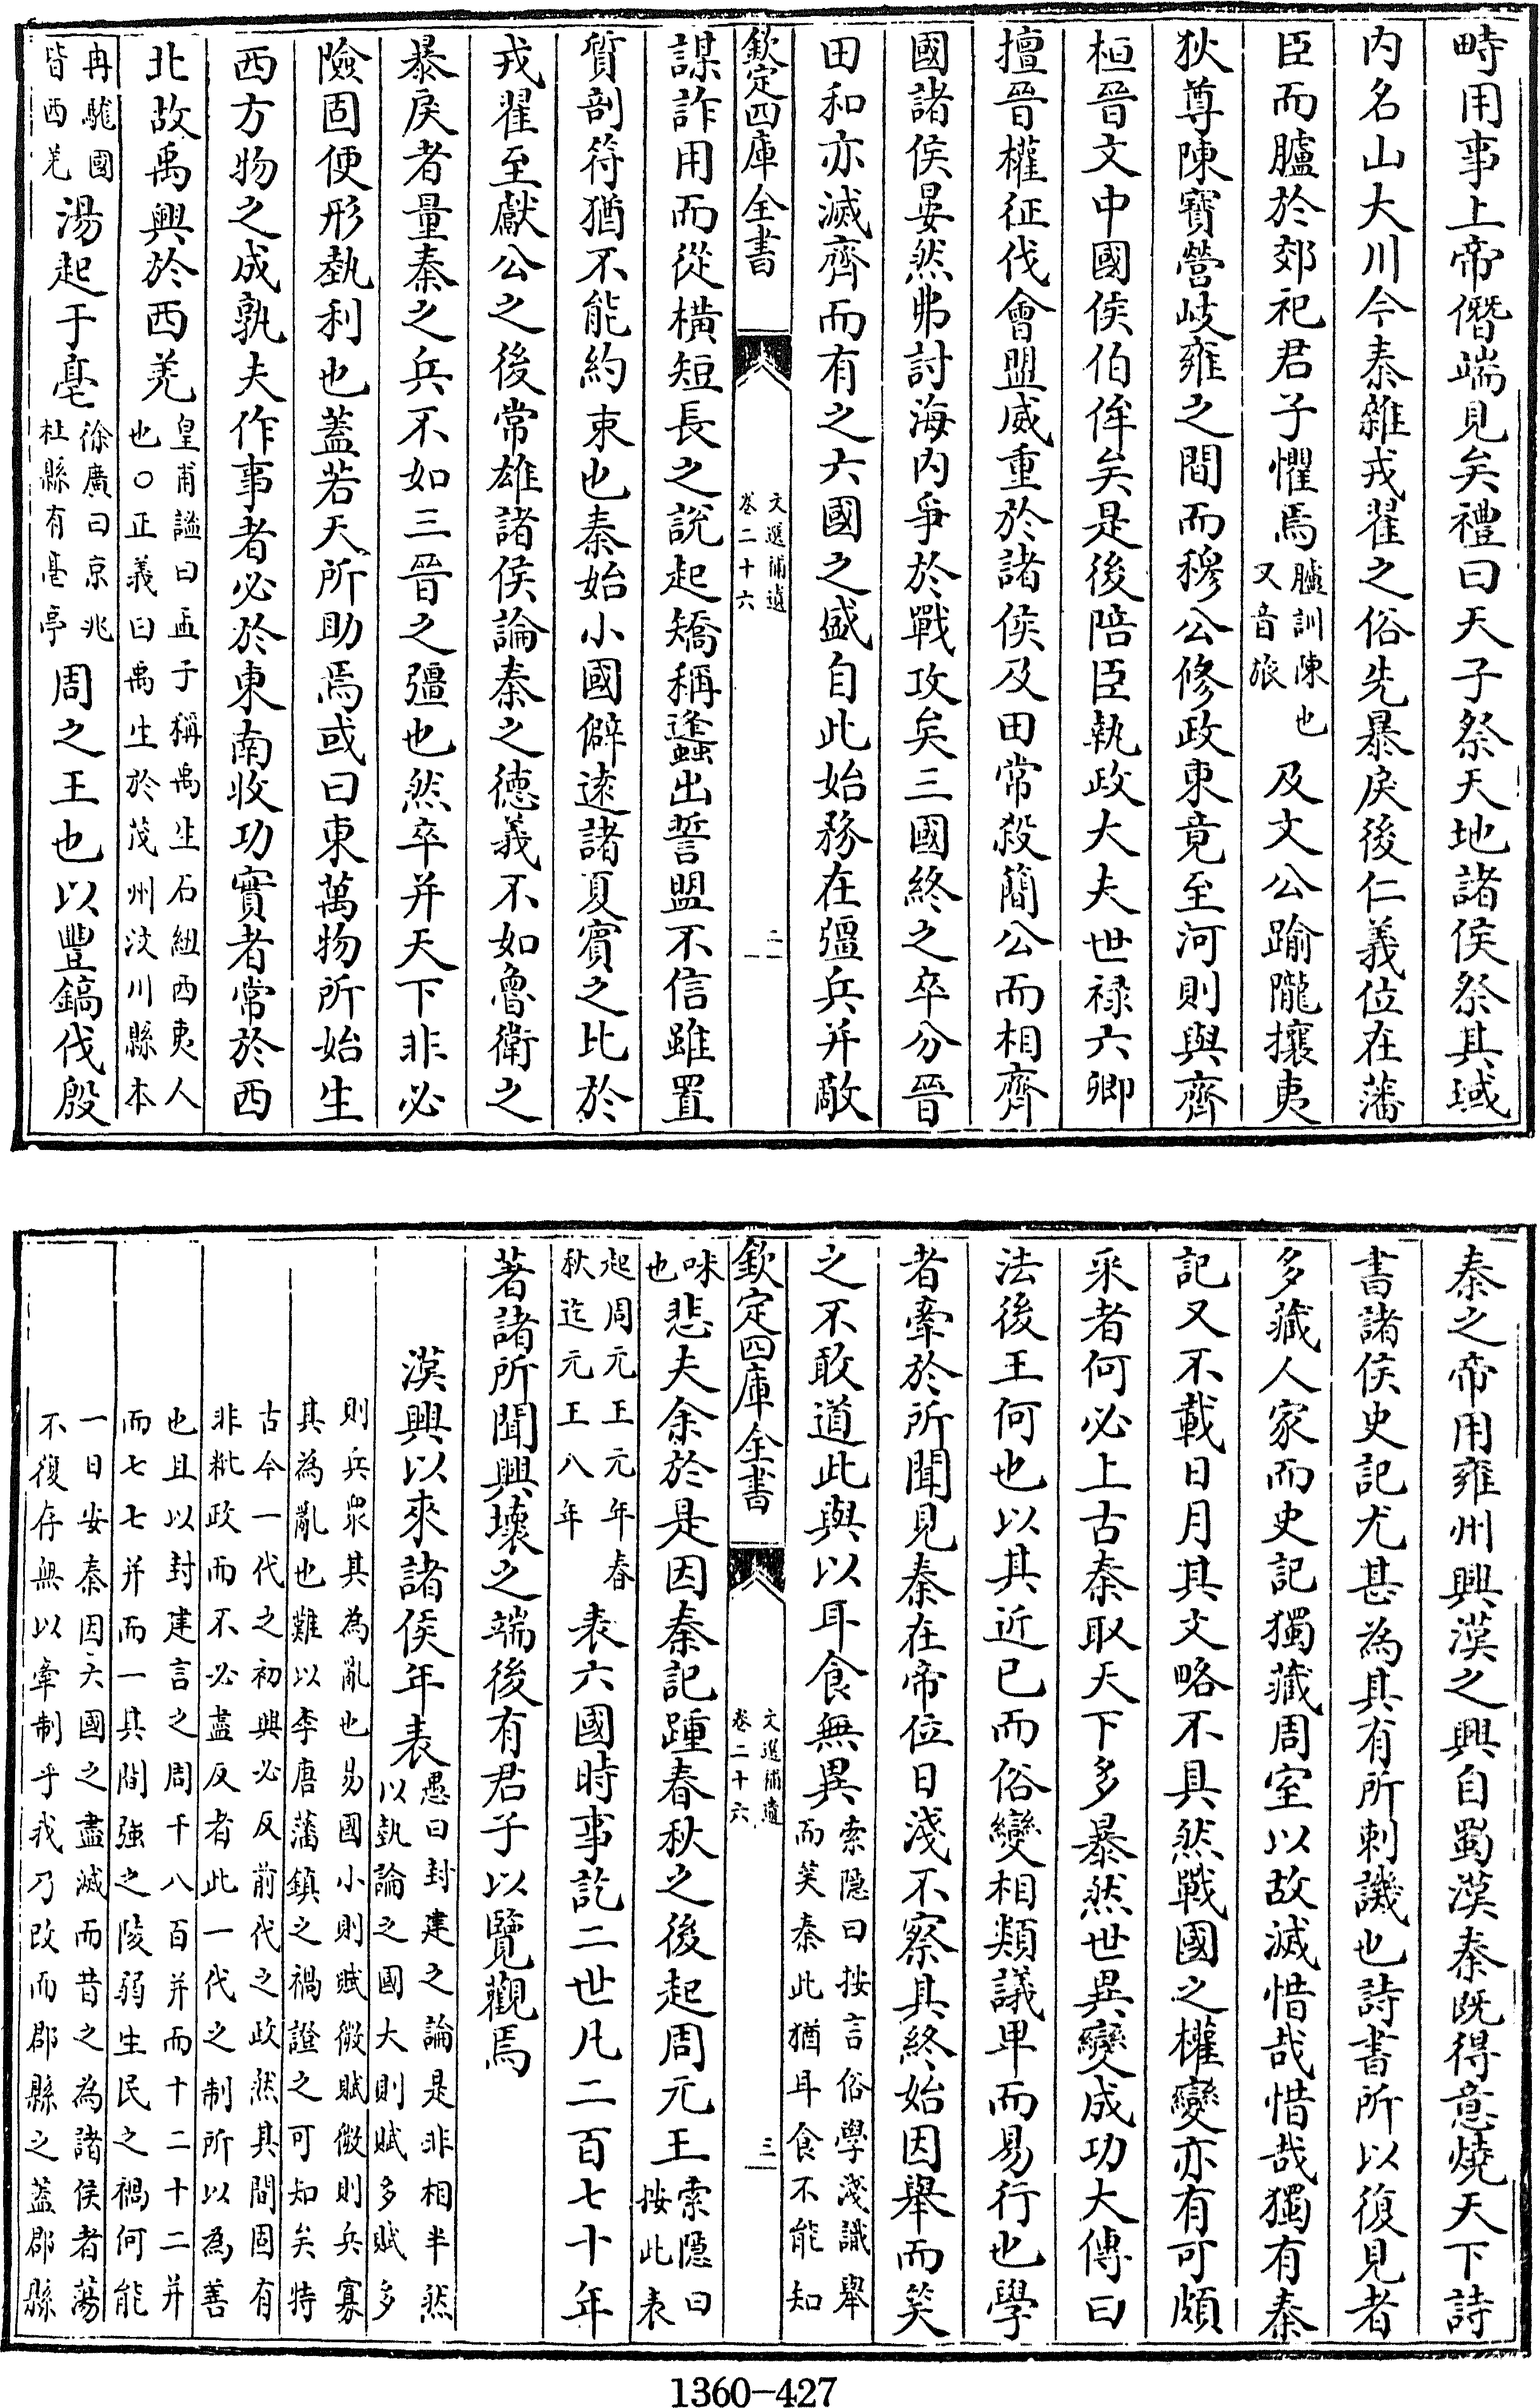 畤用事上帝僭端見矣禮曰天子祭天地諸侯祭其域
内名山大川今秦雜戎翟之俗先暴戾後仁義位在藩
臣而臚於郊祀君子懼焉臚訓陳也又音旅及文公踰隴攘夷
狄尊陳寶營岐雍之間而穆公修政東竟至河則與齊
桓晉文中國侯伯侔矣是後陪臣執政大夫世禄六卿
擅晉權征伐會盟威重於諸侯及田常殺簡公而相齊
國諸侯晏然弗討海内爭於戰攻矣三國終之卒分晉
田和亦滅齊而有之六國之盛自此始務在彊兵并敵
欽定四庫全書
文選補遺
卷二十六
二
謀詐用而從横短長之說起矯稱蠭出誓盟不信雖置
質剖符猶不能約束也秦始小國僻逺諸夏賓之比於
戎翟至獻公之後常雄諸侯論秦之徳義不如魯衛之
暴戾者量秦之兵不如三晉之彊也然卒并天下非必
險固便形埶利也蓋若天所助焉或曰東萬物所始生
西方物之成孰夫作事者必於東南收功實者常於西
北故禹興於西羌皇甫謐曰孟子稱禹生石紐西夷人也○正義曰禹生於茂州汶川縣本
冉駹國皆西羌湯起于亳徐廣曰京兆杜縣有亳亭周之王也以豐鎬伐殷
秦之帝用雍州興漢之興自蜀漢秦既得意燒天下詩
書諸侯史記尤甚為其有所刺譏也詩書所以復見者
多藏人家而史記獨藏周室以故滅惜哉惜哉獨有秦
記又不載日月其文略不具然戰國之權變亦有可頗
采者何必上古秦取天下多暴然世異變成功大傳曰
法後王何也以其近已而俗變相類議卑而易行也學
者牽於所聞見秦在帝位日淺不察其終始因舉而笑
之不敢道此與以耳食無異索隠曰按言俗學淺識舉而笑秦此猶耳食不能知
欽定四庫全書
文選補遺
卷二十六
三
味也悲夫余於是因秦記踵春秋之後起周元王索隠曰按此表
起周元王元年春秋迄元王八年表六國時事訖二世凡二百七十年
著諸所聞興壞之端後有君子以覽觀焉
漢興以來諸侯年表愚曰封建之論是非相半然以埶論之國大則賦多賦多
則兵衆其為亂也易國小則賦微賦微則兵寡其為亂也難以李唐藩鎮之禍證之可知矣特
古今一代之初興必反前代之政然其間固有非秕政而不必盡反者此一代之制所以為善
也且以封建言之周千八百并而十二十二并而七七并而一其間強之陵弱生民之禍何能
一日安秦因六國之盡滅而昔之為諸侯者蕩不復存無以牽制乎我乃改而郡縣之蓋郡縣
1360-427